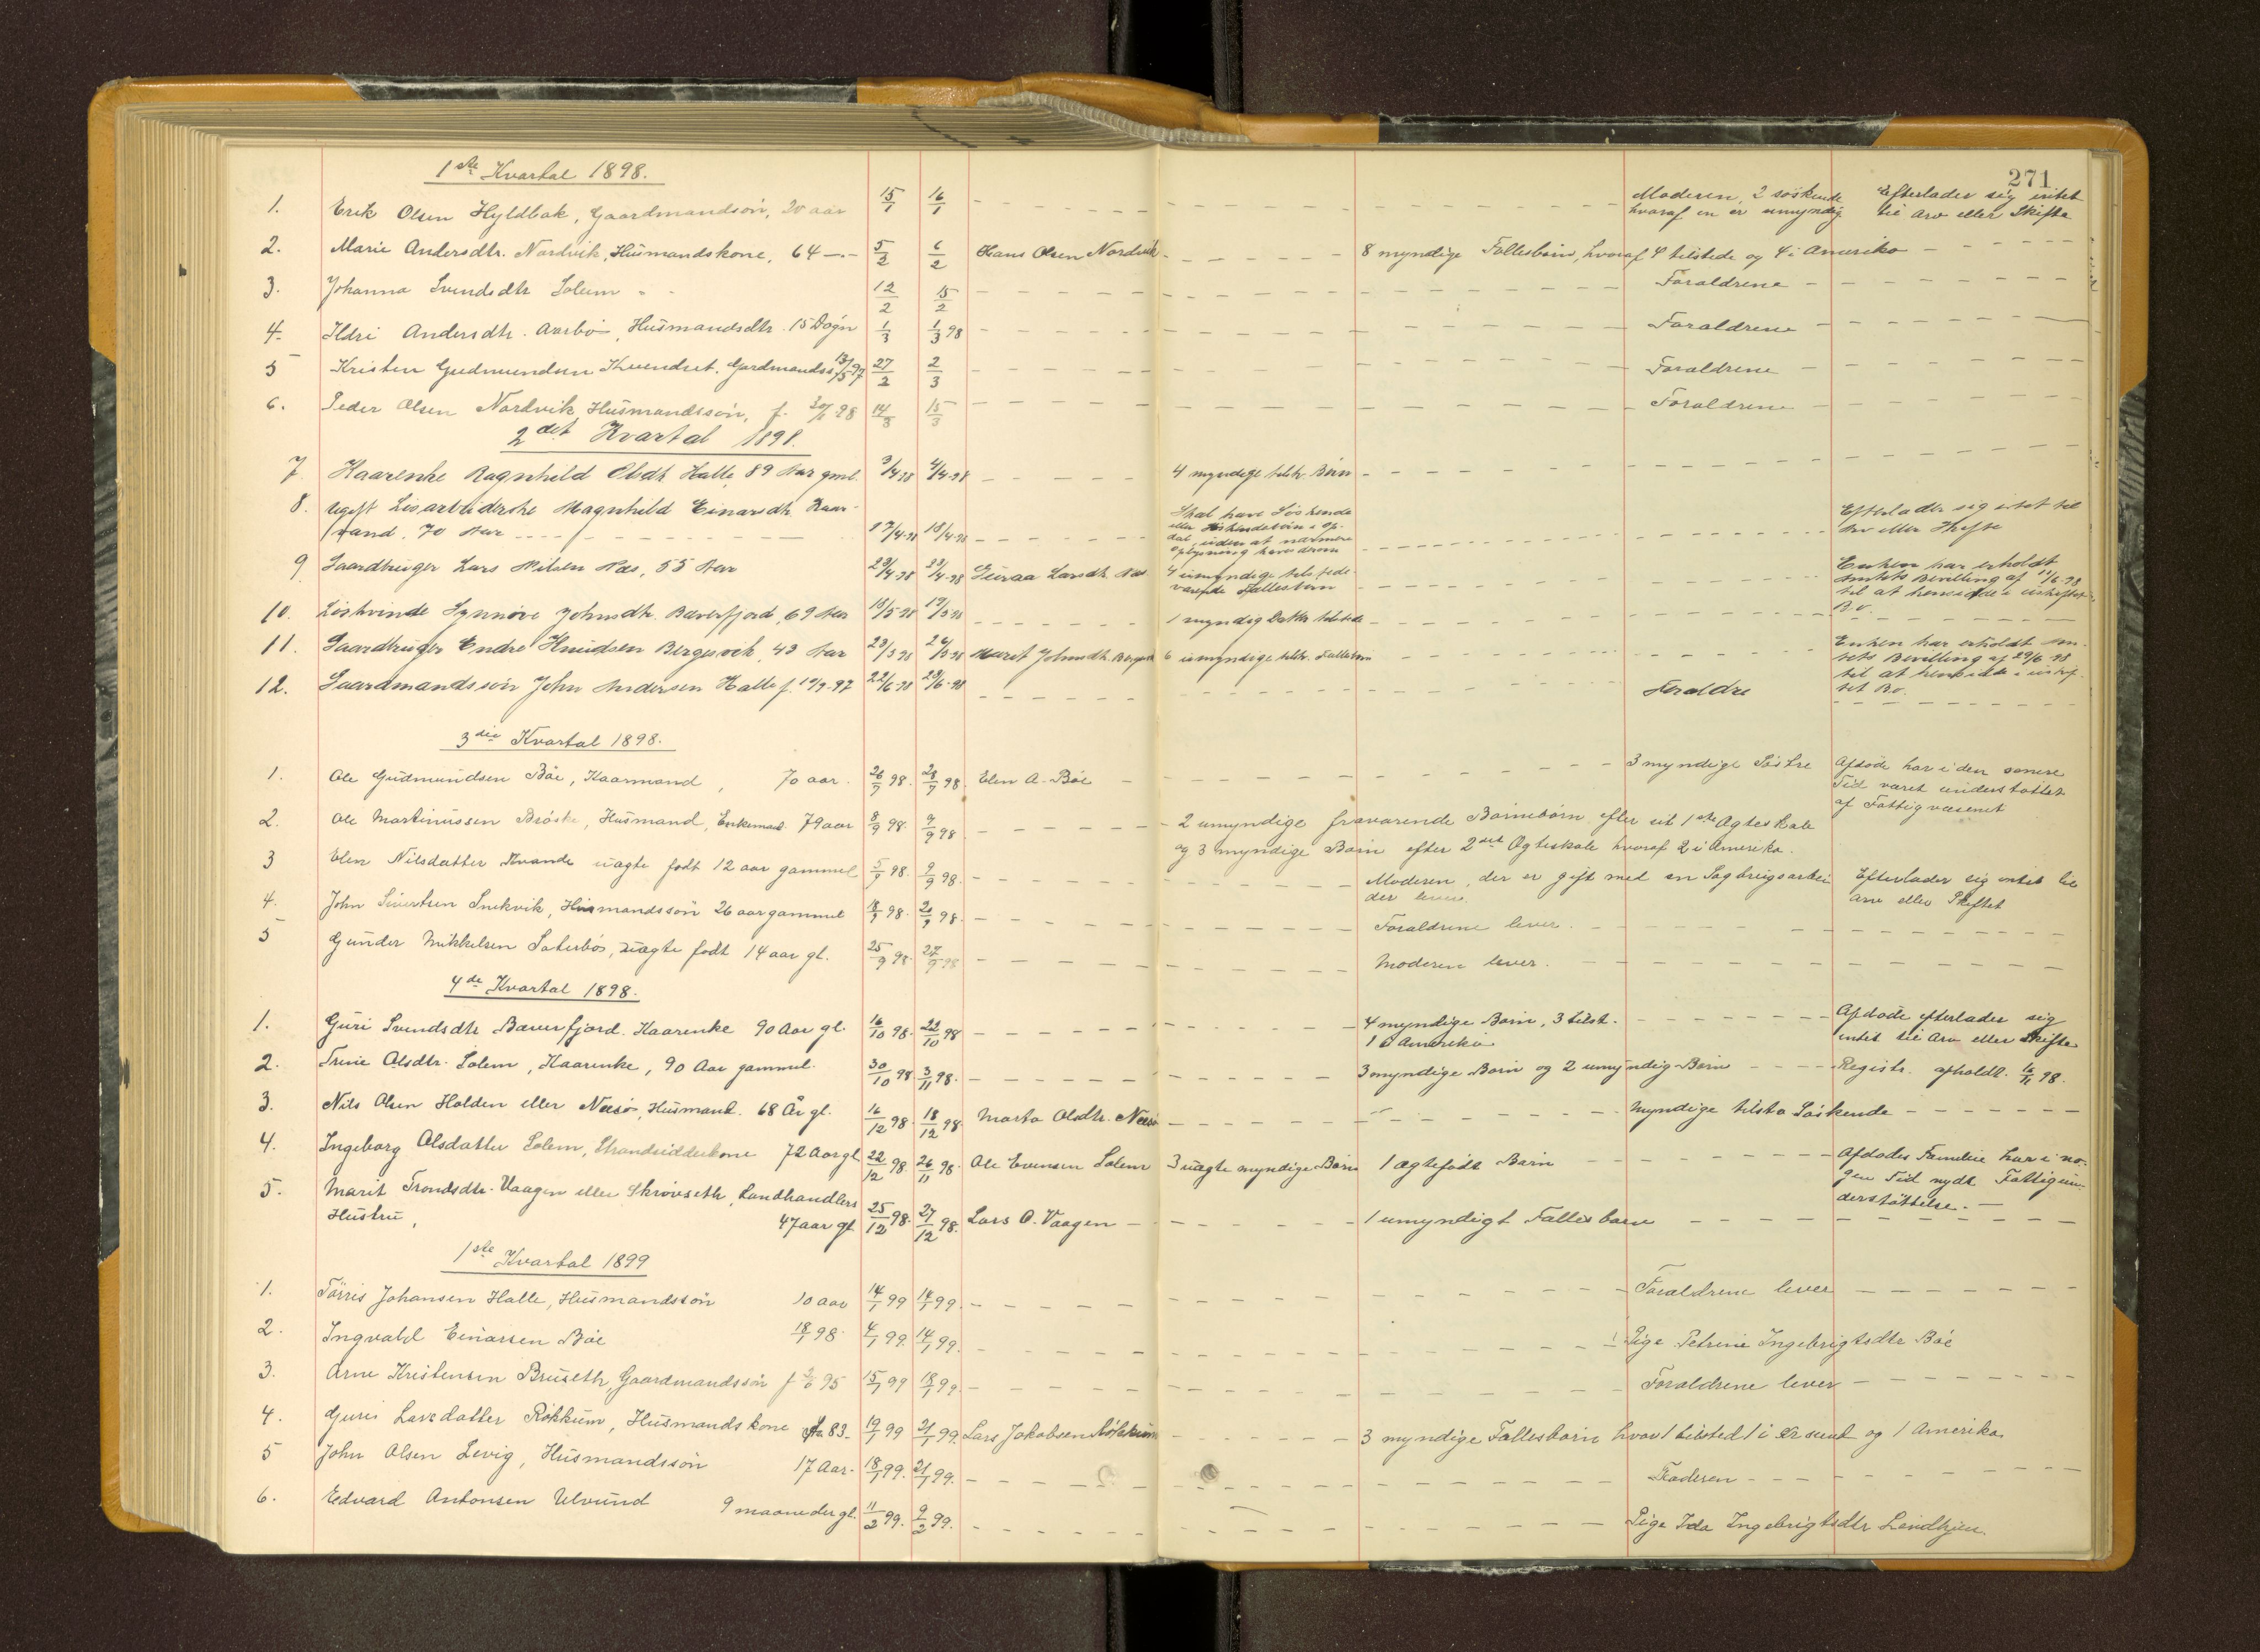 271
1ste Kvartal 1898.
1. Erik Olsen Hyldbak, Gaardmandsøn, 20 aar 15/1 16/1 Moderen, 2 søskende Efterlader sig intet
hvoraf en er umyndig til arv eller Skifte
2. Marie Andersdtr. Nordvik, Husmandskone, 64 —.— 5/2 6/2 Hans Olsen Nordvik 8 myndige Fællesbørn, hvoraf 4 tilstede og 4 i Amerika
3. Johanna Svendsdtr Solem 12/2 15/2 Forældrene
4. Ildri Andersdtr. Aasbø, Husmandsdtr. 15 Døgn 1/3 1/3 98 Forældrene
5 Kristen Gudmundsen Kvendset. Gardmandss 27/2 2/3 Forældrene
6. Peder Olsen Nordvik Husmandssøn, f. 98 14/3 15/3 Forældrene
2det Kvartal 1898.
7 Kaarenke Ragnhild Olsdt Halle, 89 Aar gml. 3/4-98 4/4-98 4 myndige tilst. Børn
8. Ugift Løsarbeiderske Magnhild Einarsdtr. Kaar- Skal have Søskende Efterlader sig intet til
vand, 70 Aar 17/4-98 18/4-98 eller Søskendebørn i Op- Arv eller Skifte
dal, uden at nærmere
oplysning haves derom
9 Gaardbruger Lars Nilsen Næs, 55 Aar 4-98 4-98 Guraa Larsdtr. Næs 4 umyndige tilstede- Enken har erholdt
værende Fællesbørn Amtets Bevilling af 11/6-98
til at hensidde i uskiftet
Bo.
10. Løskvinde Synnøve Johnsdtr. Bæverfjord, 69 Aar 18/5-98 19/5-98 1 myndig Datter tilstede
11. Gaardbruger Endre Knudsen Bergsvik, 43 Aar 23/5 98 26/5-98 Marit Johnsdtr. Bergsvik 6 umyndige tilst. Fællesbørn Enken har erholdt Am-
tets Bevilling af 29/6-98
til at hensidde i uskif-
tet Bo.
12. Gaardmandssøn John Andersen Halle f. 9-97 22/6-98 23/6-98 Forældre
3die Kvartal 1898.
1. Ole Gudmundsen Bøe, Kaarmand, 70 aar. 98. 98. Elen A. Bøe 3 myndige Søstre Afdøde har i den senere
Tid været understøttet
af Fattigvæsenet
2. Ole Martinussen Brøske, Husmand, Enkemand. 79 aar 8/9 98. 9/9 98. 2 umyndige fraværende Barnebørn efter sit 1ste Ægteskab
og 3 myndige Børn efter 2det Ægteskab hvoraf 2 i Amerika.
3 Elen Nilsdatter Kvande uægte født 12 aar gammel 5/9 98. 9/9 98. Moderen, der er gift med en Sagbrugsarbei Efterlader sig intet til
der lever. arv eller Skiftet
4. John Sivertsen Snekvik, Husmandssøn 26 aar gammel 18/9 98. 98. Forældrene lever.
5 Gunder Mikkelsen Sæterbøs, uægte født 14 aar gl. 25/9 98. 27/9 98 Moderen lever.
4de Kvartal 1898.
1. Guri Svendsdtr Bæverfjord. Kaarenke 90 Aar gl. 16/10 98. 22/10 98 4 myndige Børn, 3 tilst. Afdøde efterlader sig
1 i Amerika intet til Arv eller Skifte
2. Trine Olsdtr. Solem, Kaarenke, 90 Aar gammel. 30/10 98 3/11 98. 3 myndige Børn og 2 umyndig Børn Registr. afholdt. 98.
3. Nils Olsen Holden eller Næsø, Husmand. 68 År gl. 16/12 98. 18/12 98. Marta Olsdtr. Næsø Myndige tilsta Søskende
4. Ingeborg Olsdatter Solem, Strandsidderkone 72 Aar gl 22/12 98. 26/11 98. Ole Evensen Solem 3 uægte myndige Børn 1 ægtefødt Barn Afdødes Familie har i no-
gen Tid nydt Fattigun-
derstøttelse.
5. Marit Trondsdtr. Vaagen eller Skrøvseth, Landhandlers
Hustru, 47 aar gl 25/12 98. 27/12 98. Lars O. Vaagen 1 umyndigt Fællesbarn
1ste Kvartal 1899
1. Tørris Johansen Halle, Husmandssøn 10 aar 14/1 99 14/1 99. Forældrene lever
2. Ingvald Einarsen Bøe 18/1 98. 4/1 99. 14/1 99. Pige Petrine Ingebrigtsdtr Bøe
3. Arne Kristensen Bruseth, Gaardmandssøn f 95 15/1 99 18/1 99. Forældrene lever
4. Guri Larsdatter Røkkum, Husmandskone 83. 19/1 99 21/1 99. Lars Jakobsen Røkkum 3 myndige Fællesbørn hvor 1 tilsted 1 i Kr sund og 1 Amerika
5 John Olsen Levig, Husmandssøn 17 Aar. 18/1 99. 21/1 99. Faderen
6. Edvard Antonsen Ulvund 9 maaneder gl. 11/2 99. 9/2 99. Pige Ida Ingebrigtsdtr